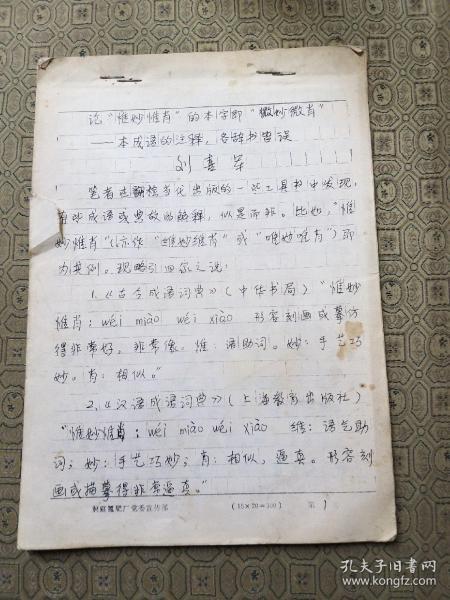 论“惟妙惟肖”的本字即“微妙微肖”
——本成语的注释，各辞书皆误
刘喜军
笔者在翻检当代出版的一些工具书中发现，
有些成语或典故的解释，似是而非。比如，“惟
妙惟肖”（亦作“维妙维肖”或“唯妙唯肖”）即
为其例。现略引四家之说：
1.《古今成语词典》（中华书局）“惟妙
惟肖：wéi miào wéi xiào 形容刻画或摹仿
得非常好，非常像。惟：语助词。妙：手艺巧
妙。肖：相似。”
2.《汉语成语词典》（上海教育出版社）
“惟妙惟肖：wéi miào wéi xiào 维：语气助
词；妙：手艺巧妙；肖：相似，逼真。形容刻
画或描摹得非常逼真。”
洞庭氮肥厂党委宣传部 （15×20=300） 第 1
孔夫子旧书网
kongfz.com